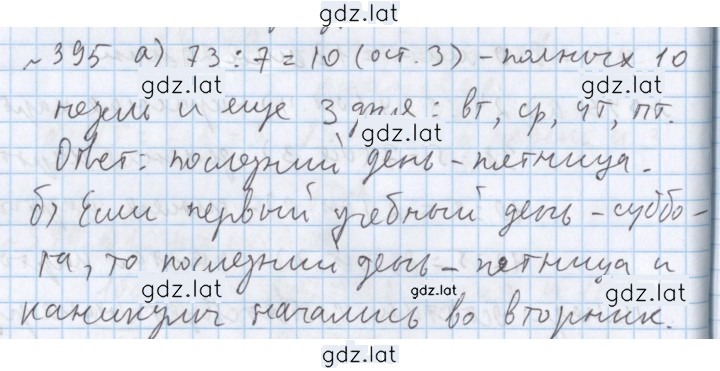 gdz.lat
№395 а) 73 : 7 = 10 (ост. 3) - полных 10
gdz.lat
недель и еще 3 дня: вт, ср, чт, пт.
gdz.lat
Ответ: последний день - пятница.
gdz.lat
б) Если первый учебный день - суббо-
gdz.lat
та, то последний день - пятница и
gdz.lat gdz.lat gdz.lat
каникулы начались во вторник.
gdz.lat